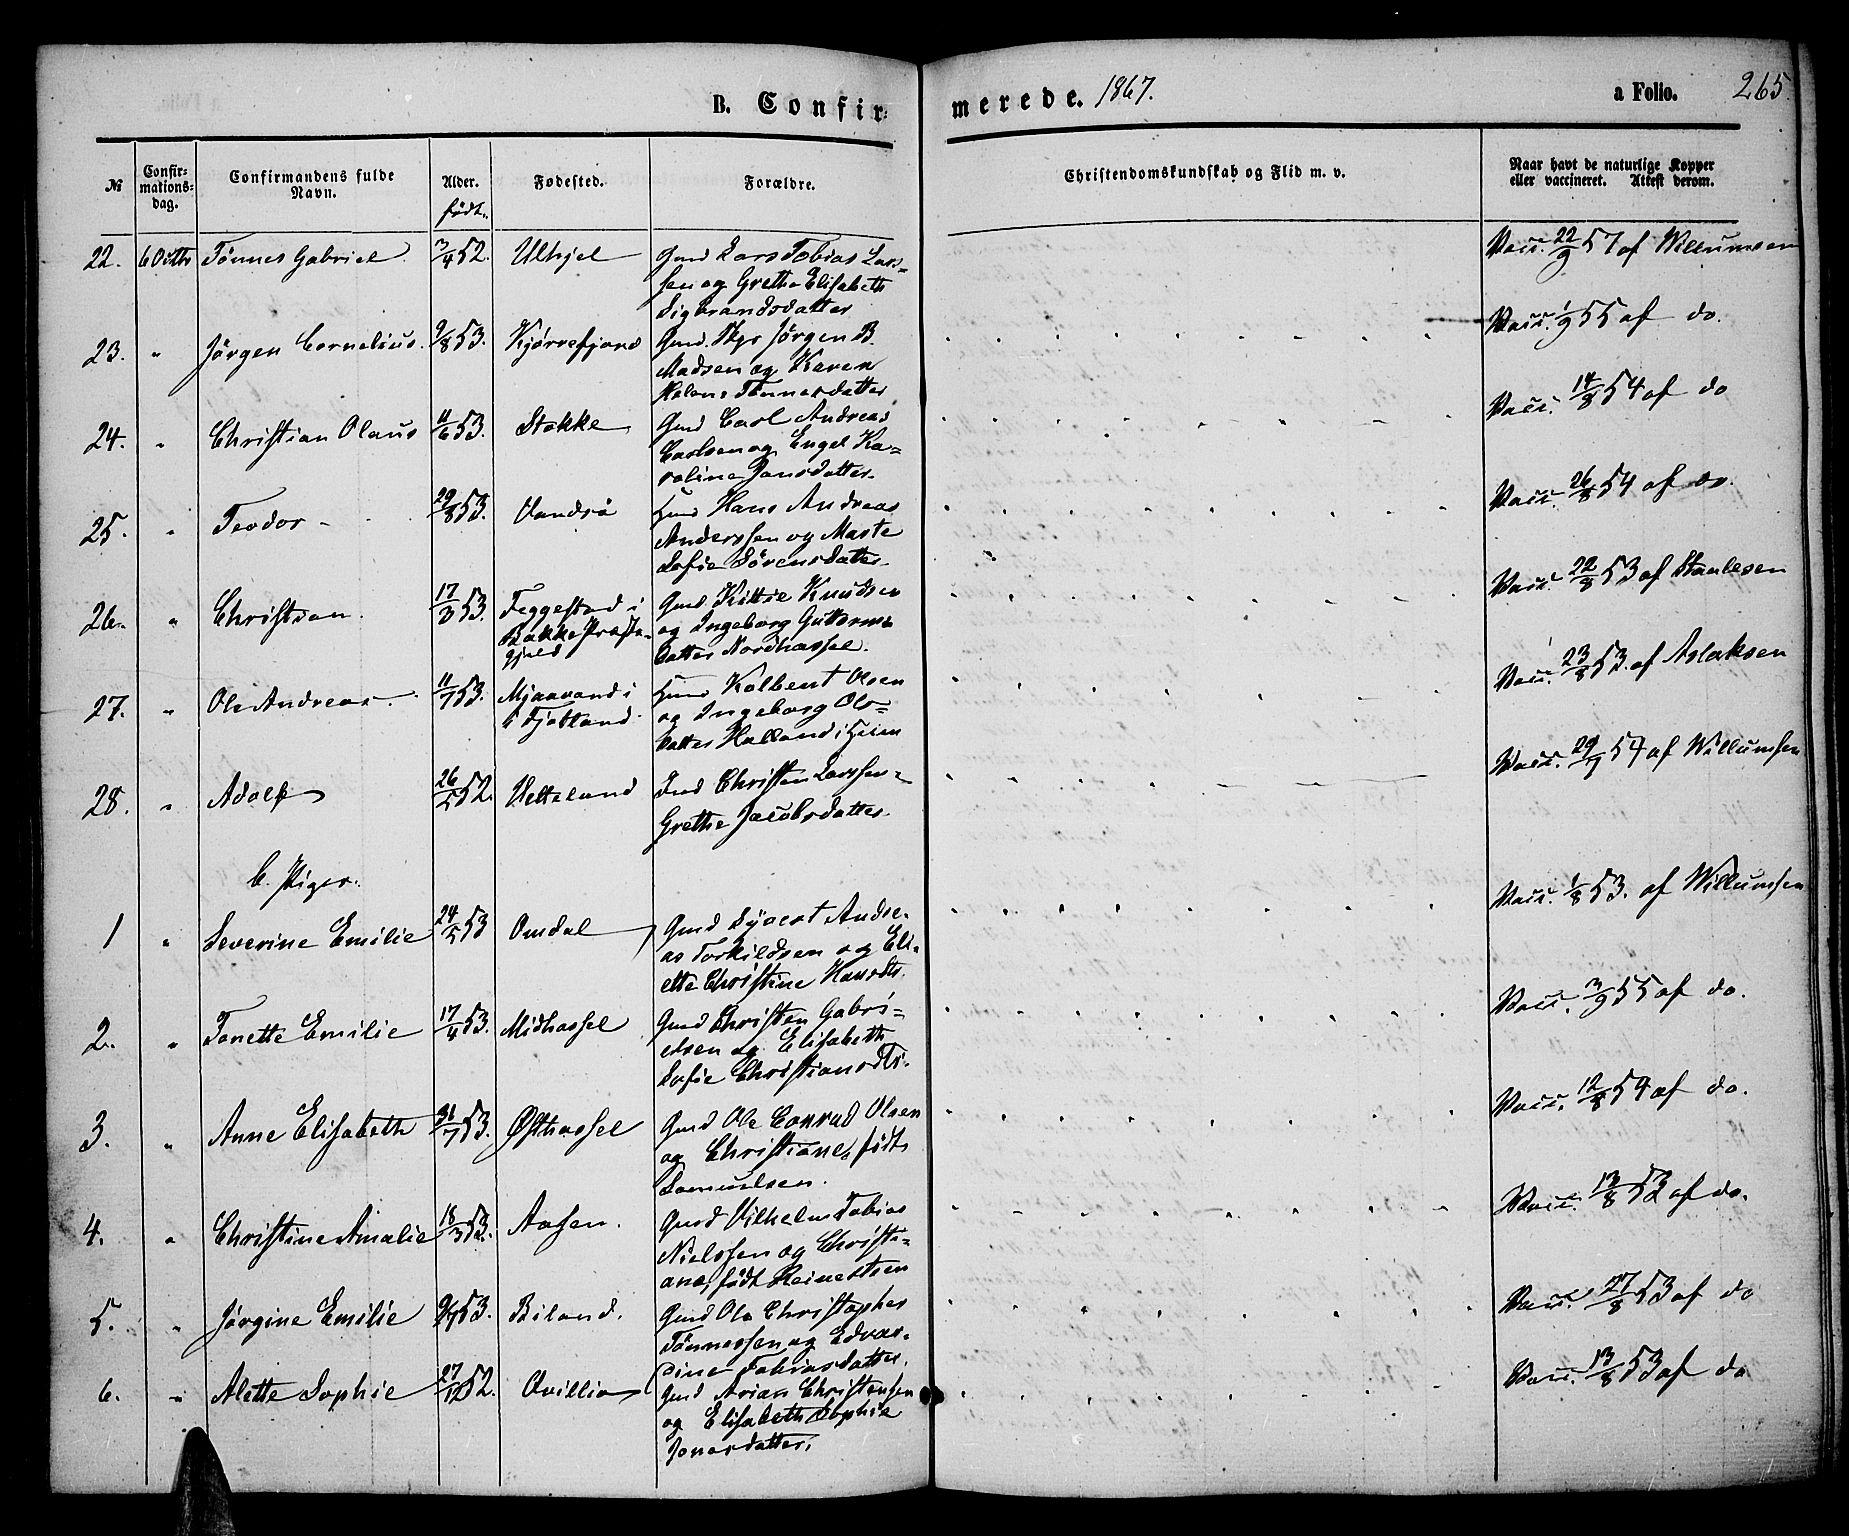 B. Confir-
merede. 1867.
a Folio. 265.
№
Confir-
mations-
dag.
Confirmandens fulde
Navn.
Alder.
født.
Fødested.
Forældre.
Christendomskundskab og Flid m. v.
Naar havt de naturlige Kopper
eller vaccineret. Attest derom.
22. 6 Octbr Tönnes Gabriel 3/4 52. Ulhjel Gmd Lars Tobias Lars-
sen og Grethe Elisabeth
Sigbrandsdatter
Vacc. 22/9 57 af Willumsen
23. " Jörgen Cornelius. 9/8 53. Kjörrefjord Gmd. Jörgen B.
Madsen og Karen
Helene Tönnesdatter
Vacc. 1/9 55 af do.
24. " Christian Olaus 11/6 53. Stokke Gmd Carl Andreas
Carlsen og Engel Ka-
roline Jansdatter.
Vacc. 14/8 54 af do
25. " Teodor 29/8 53. Vandsö Hmd Hans Andreas
Anderssen og Marte
Sofie Sörensdatter.
Vacc. 26/8 54 af do.
26. " Christian. 17/3 53. Feggestad i
Bakke Præste-
gjeld
Gmd Kittil Knudsen
og Ingeborg Guttorms
datter Nordhassel.
Vacc. 22/8 53 af Staalesen
27. " Ole Andreas 11/7 53. Mjaavand i
Fjotland
Hmd Kolbent Olsen
og Ingeborg Ols-
datter Halland i Hciem
Vacc. 23/8 53. af Aslaksen
28. " Adolf 26/5 52. Vetteland Ind Christen Larssen
Grethe Jacobsdatter.
Vacc. 29/7 54 af Willumsen
b. Piger.
1 " Severine Emilie 24/5 53 Omdal Gmd Syvert Andre-
as Torkildsen og Eli-
ette Christine Hansdtr.
Vacc. 1/8 53. af Willumsen
2. " Tonette Emilie 17/4 53. Midhassel Gmd Christen Gabri-
elsen og Elisabeth
Sofie Christiansdtr.
Vacc. 3/9 55 af do.
3. " Anne Elisabeth 31/7 53. Østhassel Gmd Ole Conrad Olsen
og Christiane, født
Samuelsen.
Vacc. 12/8 54 af do.
4. " Christine Amalie 18/3 53. Aasen. Gmd Vilhelm Tobias
Nielssen og Christi-
ane, født Reinertsen
Vacc. 13/8 53 af do.
5. " Jörgine Emilie 9/7 53. Biland. Gmd Ole Christopher
Tönnessen og Edvar-
dine Tobiasdatter.
Vacc. 27/8 53 af do
6. " Alette Sophie 27/12 52. Qvillio Gmd Arian Christensen
og Elisabeth Sophie
Jonasdatter.
Vacc. 13/8 53 af do